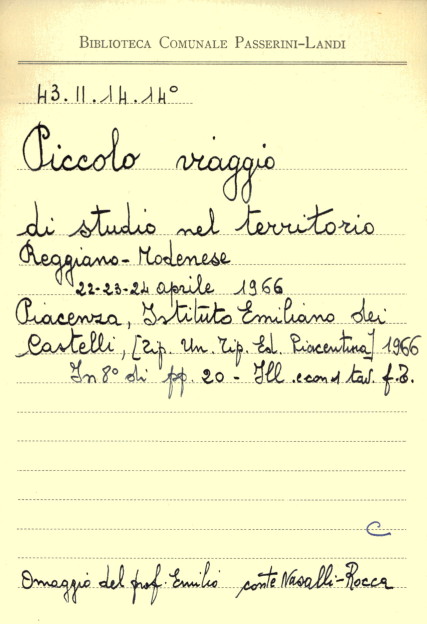 BIBLIOTECA COMUNALE PASSERINI-LANDI
43.II.14.14°
Piccolo viaggio
di studio nel territorio
Reggiano-Modenese
22-23-24 aprile 1966
Piacenza, Istituto Emiliano dei
Castelli, [Tip. Un. Tip. Ed. Piacentina] 1966
In 8° di pp. 20 - Ill. e con 1 tav. f.t.
C
Omaggio del prof. Emilio conte Nasalli-Rocca